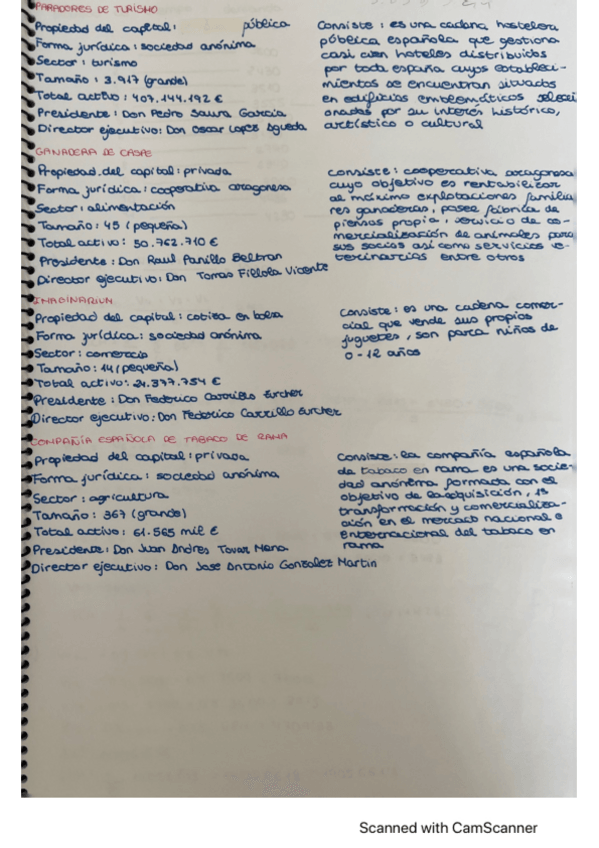 PARADORES DE TURISMO
Propiedad del capital: pública
Forma jurídica: sociedad anónima
Sector: turismo
Tamaño: 3.917 (grande)
Total activo: 407.144.192 €
Presidente: Don Pedro Saura Garcia
Director ejecutivo: Don Oscar Lopez Agueda
Consiste: es una cadena hostelera
pública española que gestiona
casi cien hoteles distribuidos
por toda españa cuyos estableci-
mientos se encuentran situados
en edificios emblemáticos selecci
onados por su interés histórico,
artístico o cultural
GANADERA DE CASPE
Propiedad del capital: privada
Forma jurídica: cooperativa aragonesa
Sector: alimentación
Tamaño: 45 (pequeña)
Total activo: 50.762.710 €
Presidente: Don Raul Panillo Beltran
Director ejecutivo: Don Tomas Fillola Vicente
Consiste: cooperativa aragonesa
cuyo objetivo es rentabilizar
al máximo explotaciones familia
res ganaderas, posee fábrica de
piensos propia, servicio de co-
mercialización de animales para
sus socios así como servicios ve-
terinarios entre otros
IMAGINARIUM
Propiedad del capital: cotiza en bolsa
Forma jurídica: sociedad anónima
Sector: comercio
Tamaño: 14 (pequeña)
Total activo: 24.377.754 €
Presidente: Don Federico Carrillo Zurcher
Director ejecutivo: Don Federico Carrillo Zurcher
Consiste: es una cadena comer-
cial que vende sus propios
juguetes, son para niños de
0-12 años
COMPAÑÍA ESPAÑOLA DE TABACO DE RAMA
Propiedad del capital: privada
Forma jurídica: sociedad anónima
Sector: agricultura
Tamaño: 367 (grande)
Total activo: 61.565 mil €
Presidente: Don Juan Andres Tovar Mena
Director ejecutivo: Don Jose Antonio Gonzalez Martin
Consiste: la compañía española
de tabaco en rama es una socie-
dad anónima formada con el
objetivo de la adquisición,
transformación y comercializa-
ación en el mercado nacional e
internacional del tabaco en
rama
Scanned with CamScanner